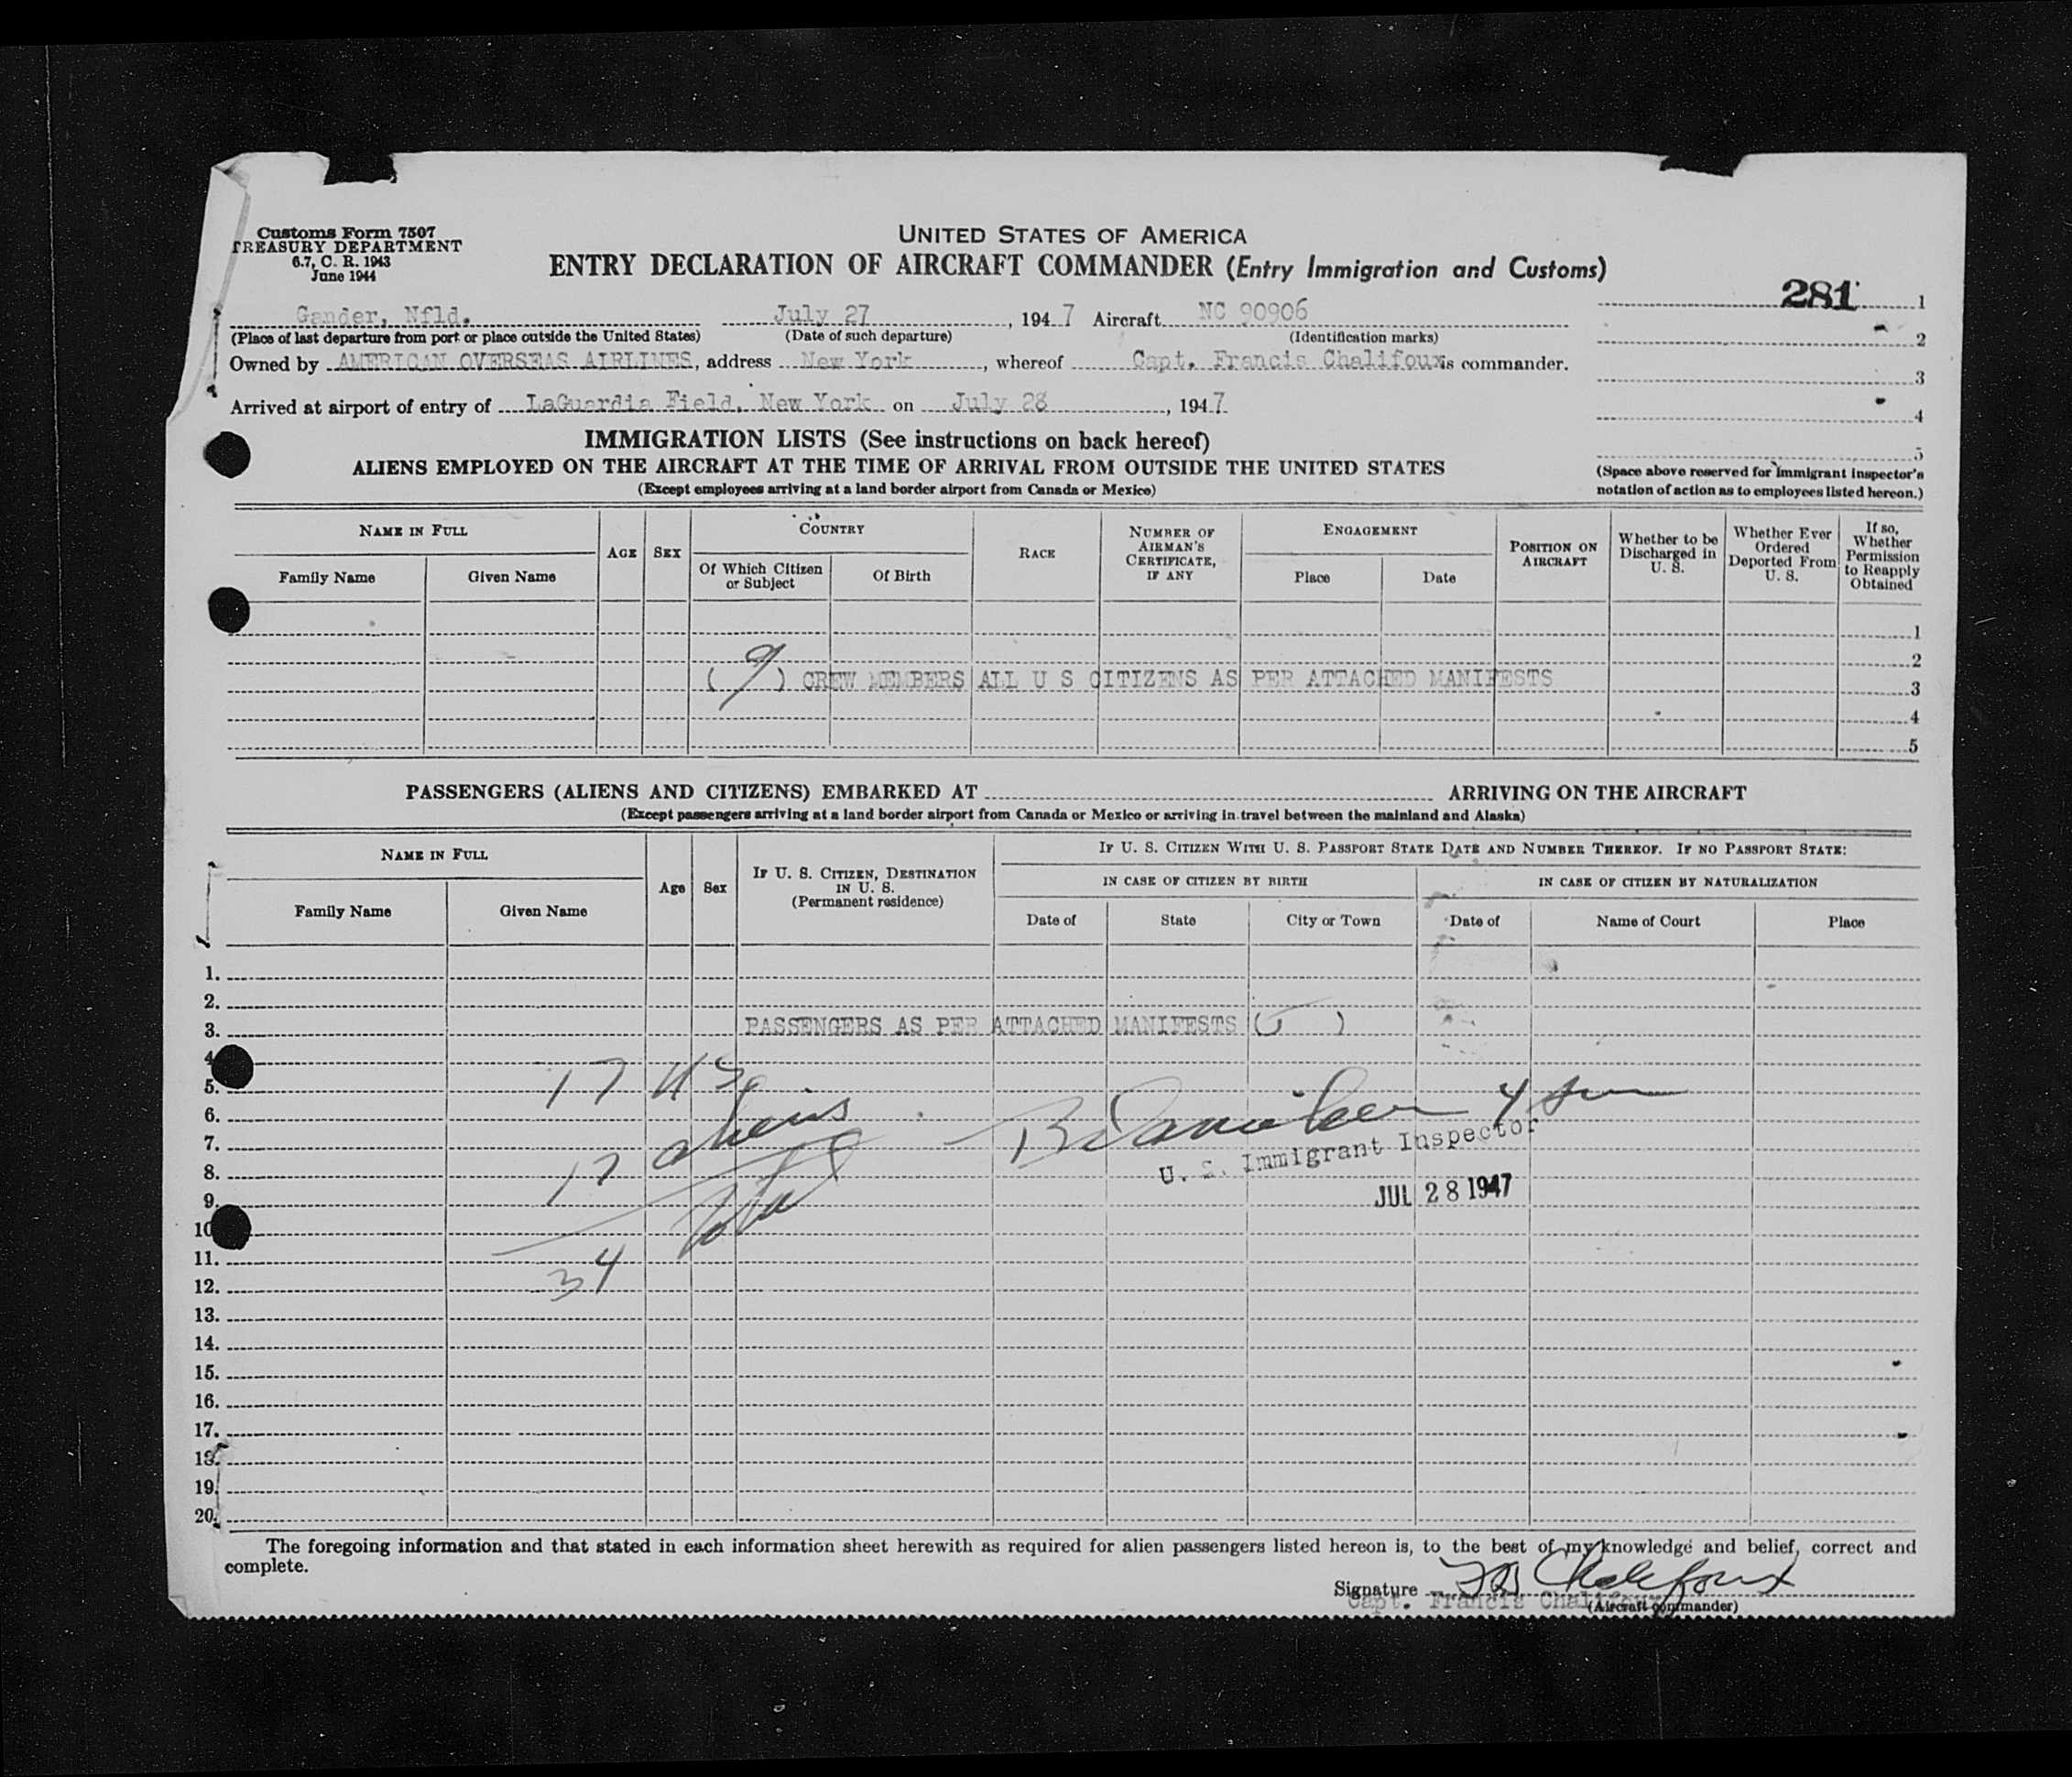 Customs Form 7507
TREASURY DEPARTMENT
6.7, C. R. 1943
June 1944
UNITED STATES OF AMERICA
ENTRY DECLARATION OF AIRCRAFT COMMANDER (Entry Immigration and Customs)
281 1
Gander, Nfld. July 27, 1947 Aircraft NC 90906
2
(Place of last departure from port or place outside the United States) (Date of such departure) (Identification marks)
Owned by AMERICAN OVERSEAS AIRLINES, address New York, whereof Capt. Francis Chalifoux is commander.
3
Arrived at airport of entry of LaGuardia Field, New York on July 28, 1947
4
IMMIGRATION LISTS (See instructions on back hereof)
5
ALIENS EMPLOYED ON THE AIRCRAFT AT THE TIME OF ARRIVAL FROM OUTSIDE THE UNITED STATES
(Space above reserved for immigrant inspector's
notation of action as to employees listed hereon.)
(Except employees arriving at a land border airport from Canada or Mexico)
NAME IN FULL
Family Name Given Name
AGE SEX
COUNTRY
Of Which Citizen or Subject Of Birth
RACE
NUMBER OF AIRMAN'S CERTIFICATE, IF ANY
ENGAGEMENT
Place Date
POSITION ON AIRCRAFT
Whether to be Discharged in U. S.
Whether Ever Ordered Deported From U. S.
If so, Whether Permission to Reapply Obtained
1
2
(9) CREW MEMBERS ALL U S CITIZENS AS PER ATTACHED MANIFESTS 3
4
5
PASSENGERS (ALIENS AND CITIZENS) EMBARKED AT ARRIVING ON THE AIRCRAFT
(Except passengers arriving at a land border airport from Canada or Mexico or arriving in travel between the mainland and Alaska)
NAME IN FULL
Family Name Given Name
Age Sex
IF U. S. CITIZEN, DESTINATION IN U. S.
(Permanent residence)
IF U. S. CITIZEN WITH U. S. PASSPORT STATE DATE AND NUMBER THEREOF. IF NO PASSPORT STATE:
IN CASE OF CITIZEN BY BIRTH IN CASE OF CITIZEN BY NATURALIZATION
Date of State City or Town Date of Name of Court Place
1.
2.
3. PASSENGERS AS PER ATTACHED MANIFESTS ( )
4.
5. 17 US
6.
7. aliens
U. S. Immigrant Inspector
8. 17
9. JUL 28 1947
10 Total
11.
12. 34
13.
14.
15.
16.
17.
18.
19.
20.
The foregoing information and that stated in each information sheet herewith as required for alien passengers listed hereon is, to the best of my knowledge and belief, correct and
complete.
Signature Chalifoux
Capt. Francis Chalifoux
(Aircraft commander)